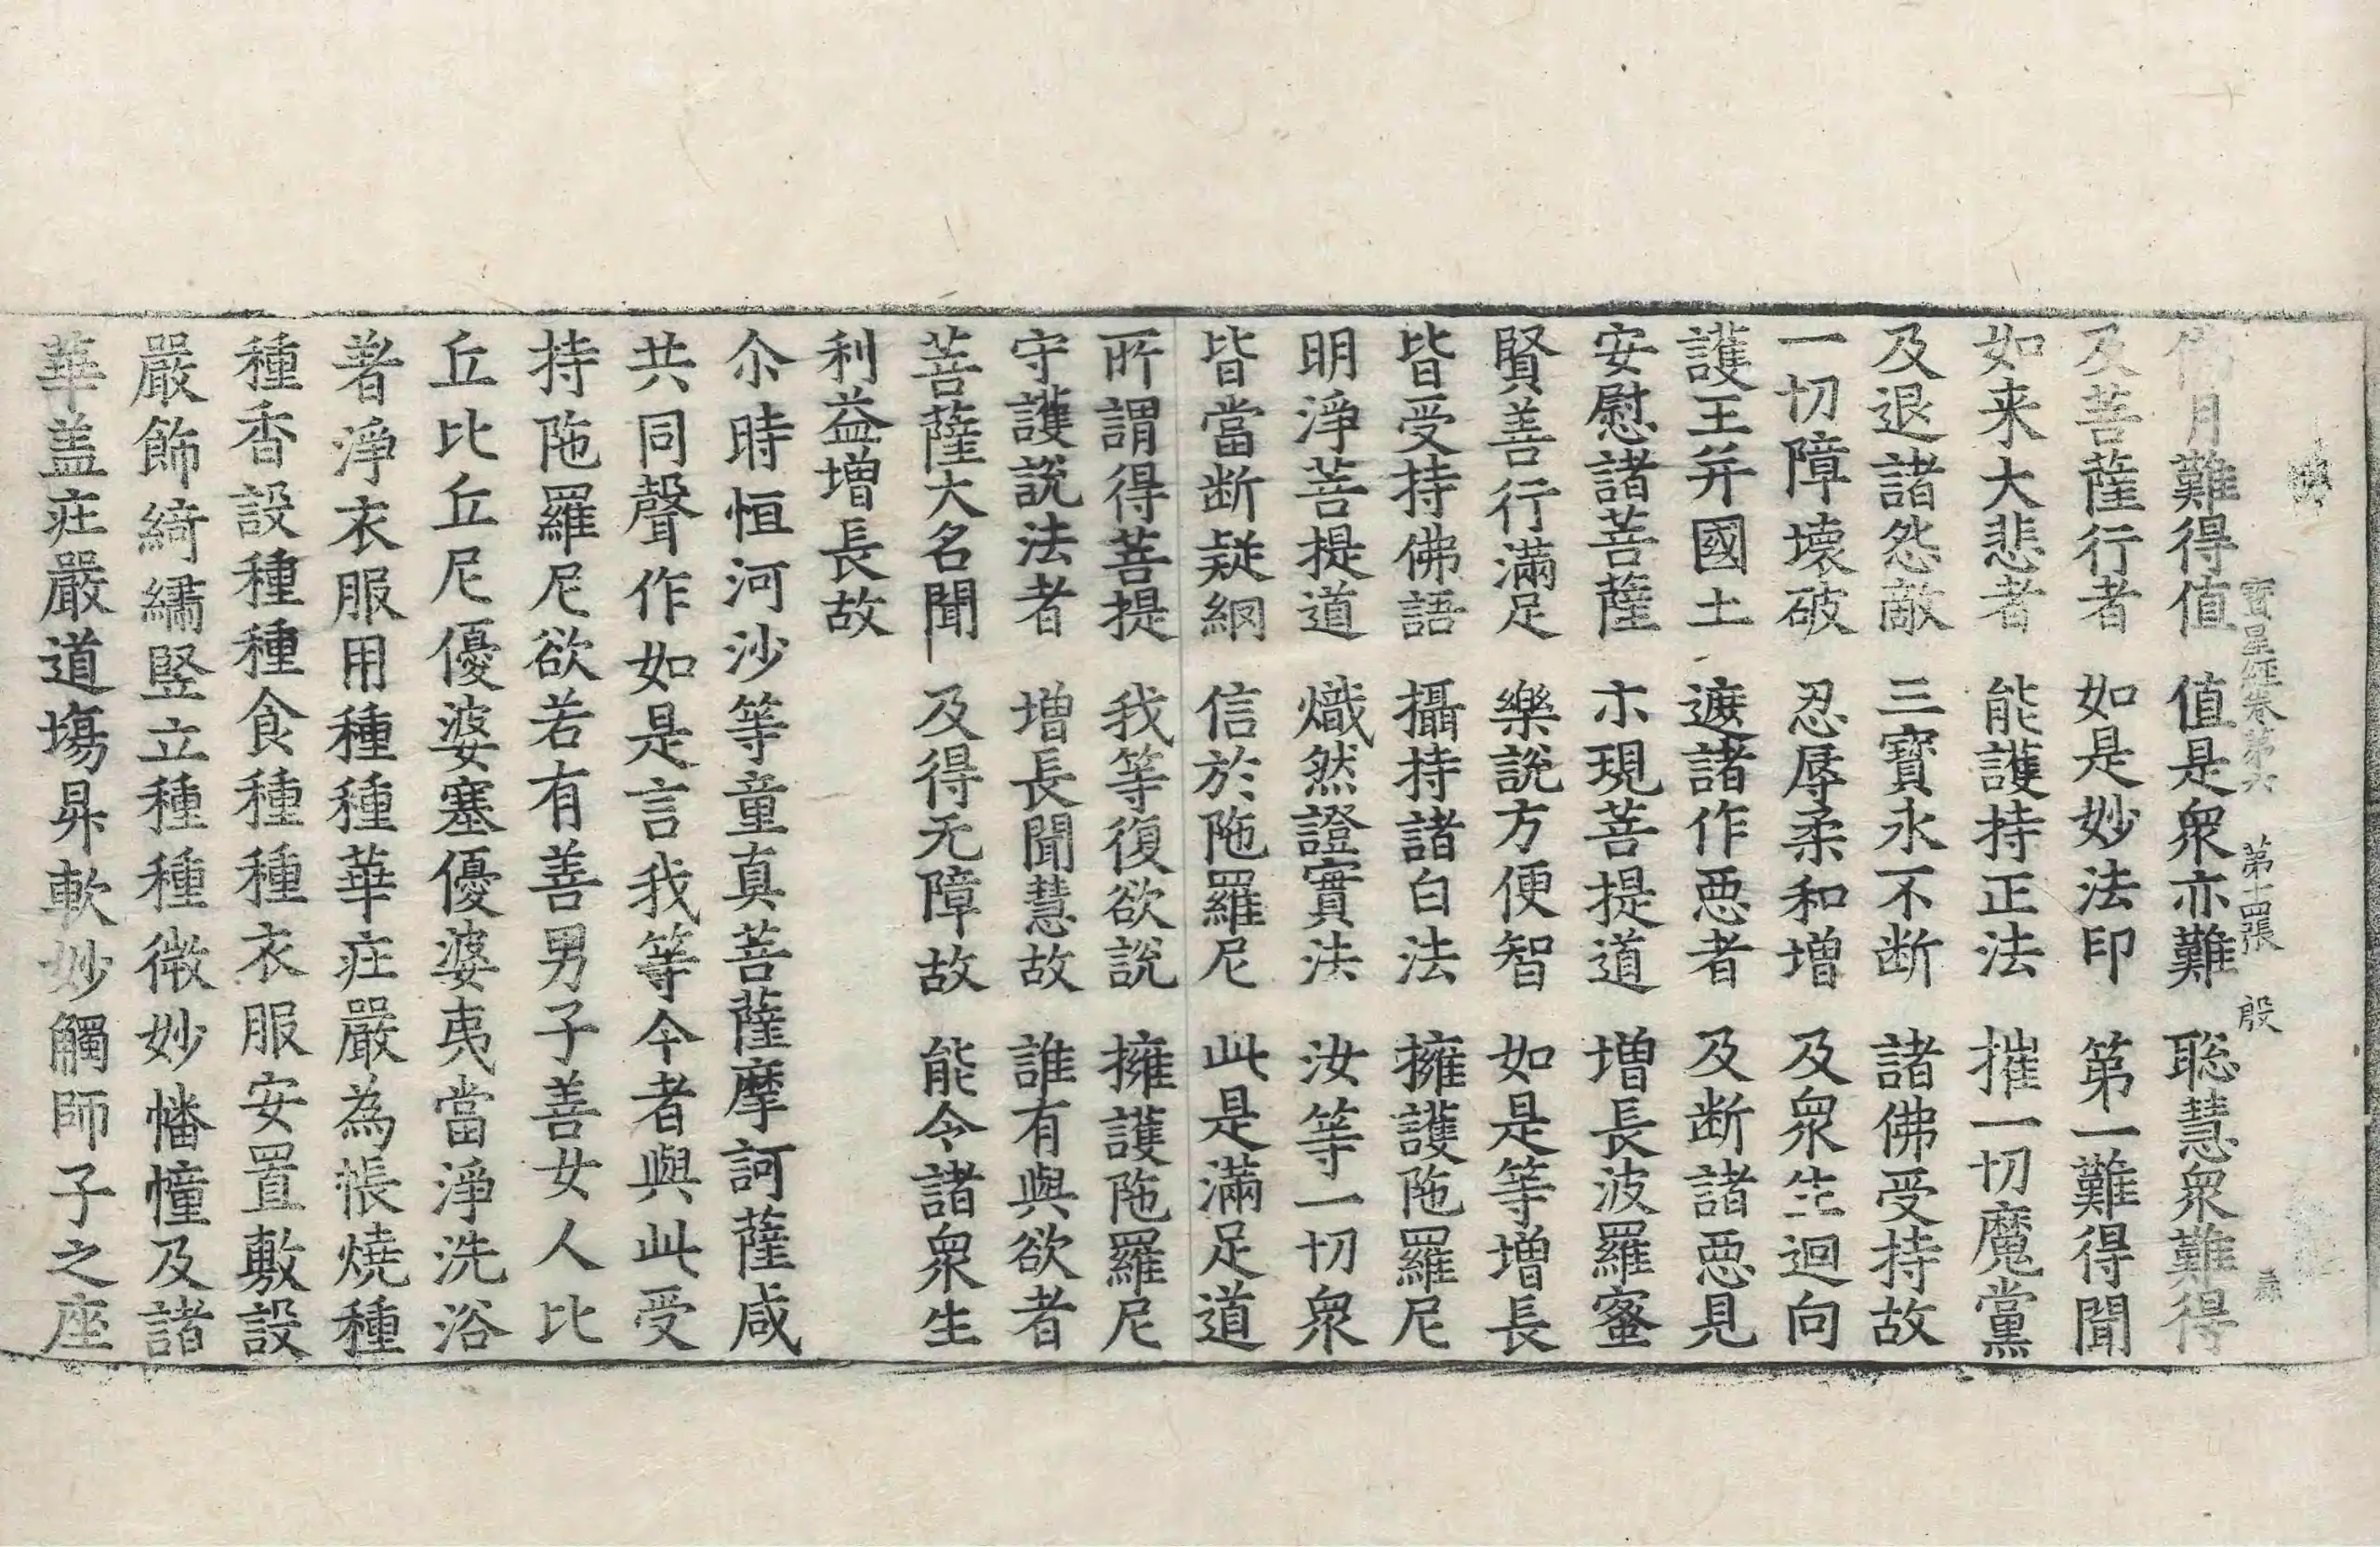 寶星経卷第六 第十四張 殷
月難得值 值是衆亦難 聡慧衆難得
及菩薩行者 如是妙法印 第一難得聞
如来大悲者 能護持正法 摧一切魔黨
及退諸怨敵 三寶永不断 諸佛受持故
一切障壞破 忍辱柔和增 及衆生迴向
護王并國土 遮諸作惡者 及断諸惡見
安慰諸菩薩 示現菩提道 增長波羅蜜
賢善行滿足 樂說方便智 如是等增長
皆受持佛語 攝持諸白法 擁護陁羅尼
明淨菩提道 熾然證實法 汝等一切衆
皆當断疑網 信於陁羅尼 此是滿足道
所謂得菩提 我等復欲說 擁護陁羅尼
守護說法者 增長聞慧故 誰有與欲者
菩薩大名聞 及得无障故 能令諸衆生
利益增長故
尒時恒河沙等童真菩薩摩訶薩咸
共同聲作如是言我等今者與此受
持陁羅尼欲若有善男子善女人比
丘比丘尼優婆塞優婆夷當淨洗浴
著淨衣服用種種華庄嚴為帳燒種
種香設種種食種種衣服安置敷設
嚴飾綺繡竪立種種微妙幡幢及諸
華盖庄嚴道塲昇軟妙觸師子之座